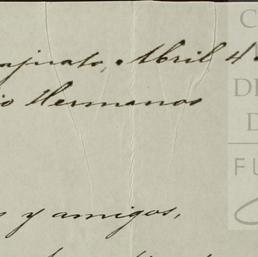 ajuato, Abril 4
io Hermanos
s y amigos,
C
DE
D
FU